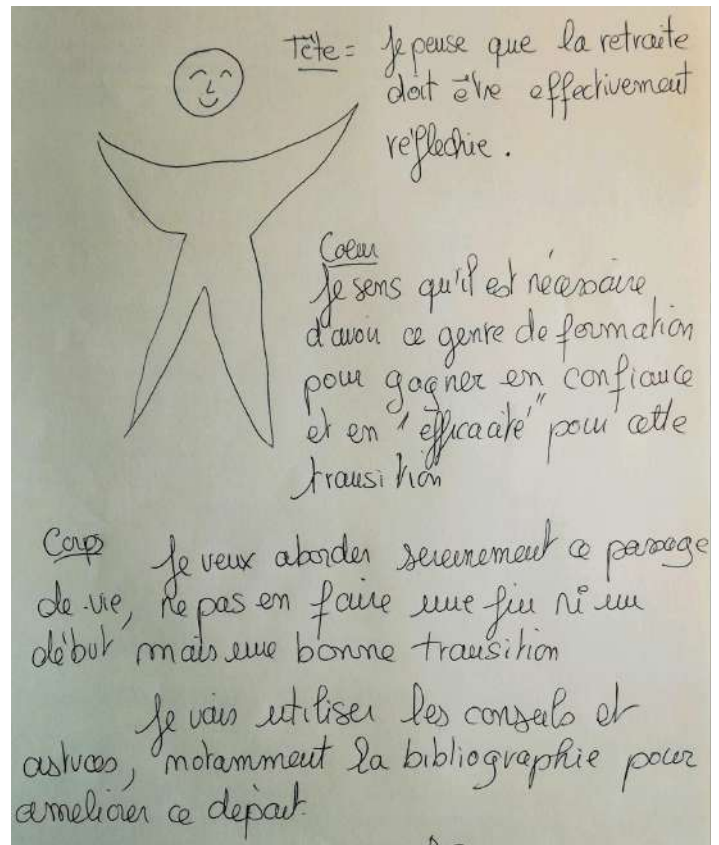 Tête = Je pense que la retraite
doit être effectivement
réflechie.
Coeur
Je sens qu'il est nécessaire
d'avoir ce genre de formation
pour gagner en confiance
et en "efficacité" pour cette
transition
Corps Je veux aborder sereinement ce passage
de vie, ne pas en faire une fin ni un
début mais une bonne transition
Je vais utiliser les conseils et
astuces, notamment la bibliographie pour
ameliorer ce départ.